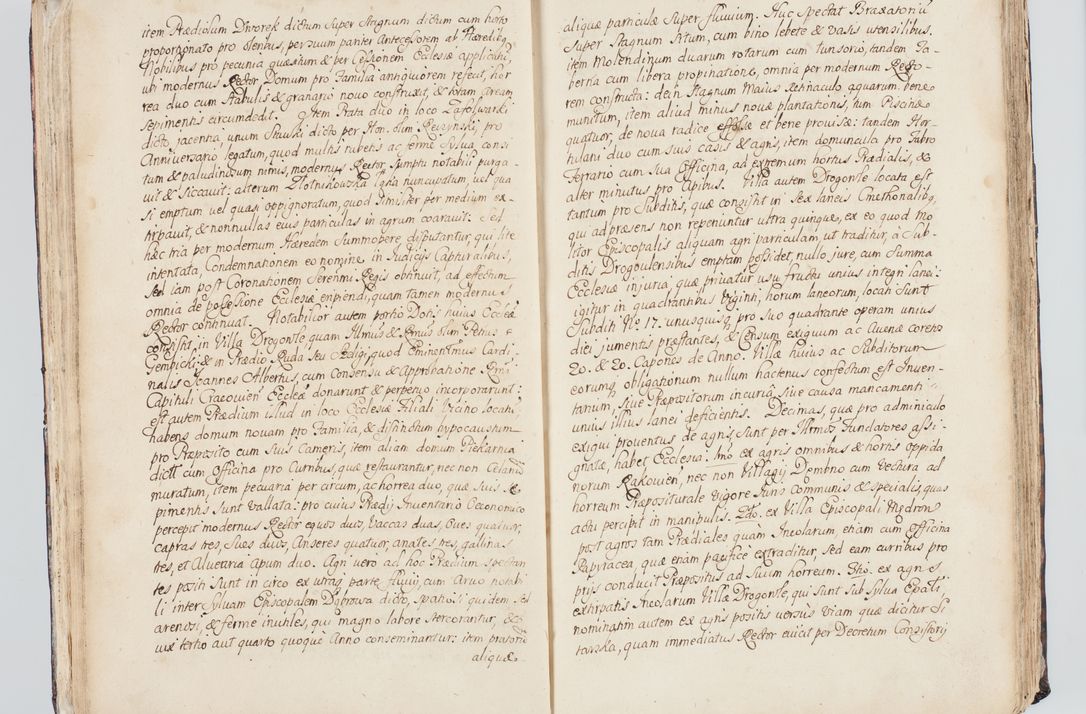 item Prædiolum Dworek dictum super Stagnum dictum cum horto
proportionato pro oleribus, per suum pariter Antecessorem ab Hæredibus
Nobilibus pro pecunia quæsitum & per Cessionem Ecclesiæ applicitum,
ubi modernus Rector Domum pro Familia antiquiorem refecit, hor
rea duo cum Stabulis & granario novo construxit, & totam aream
sepimentis circumdedit. Item Prata duo in loco
dicto jacentia, unum Stawki dicto per Hon: olim Reczynski, pro
Anniversario legatum, quod multis rubetis ac ferme Sylva consi
tum & paludinosum nimis, modernus Rector, Sumptu notabili purga
vit & siccavit: alterum Zlotnikowska ligna nuncupatum vel qua
si emptum vel quasi oppignoratum, quod similiter per medium ex-
tirpavit, & nonnullas eius particulas in agrum coaravit. Sed
hæc tria per modernum Hæredem Summopere disputantur, qui lite
intentata, Condemnationem eo nomine in Judicijs Capturalibus,
sed iam post Coronationem Serenmi Regis obtinuit, ad effectum
omnia de possessione Ecclesiæ eripiendi, quam tamen modernus
Rector continuat. Notabilior autem portio Dotis huius Ecclæ
consistit in Villa Drogowle, quam Illmus & Rmus olim Petrus
Gempicki: & in Prædio Ruda seu Sedigi, quod Eminentmus Cardi
nalis Joannes Albertus, cum Consensu & Approbatione Rmi
Capituli Cracovien̄ Eccleæ donarunt & perpetuo incorporarunt:
est autem Prædium illud in loco Ecclesiæ Filiali vicino locatū
habens domum novam pro Familia, & distinctum hypocaustum
pro Præposito cum suis Cameris, item aliam domum Piekarnia
dictā cum Officina pro Curribus, quæ restaurantur, nec non Celariū
muratum, item pecuaria per circum, ac horrea duo, quæ suis se
pimentis sunt vallata: pro cuius Prædij Inventario Oeconomico
percepit modernus Rector equos duos, Vaccas duas, Oues quatuor,
capras tres, Sues duos, Anseres quatuor, anates tres, gallinas
tres, et Alvearia Apum duo. Agri vero ad hoc Prædium spectan
tes positi sunt in circo ex utraq parte fluvij, cum Arvo notabi
li inter Sylvam Episcopalem Dąbrowa dicto, spatiosi quidem, sed
arenosi, & ferme inutiles, qui magno labore stercorantur, &
vix tertio aut quarto quoque Anno conseminantur: item pratorū
aliquæ
aliquæ particulæ super fluvium. Huc spectat Braxatoriū
super Stagnum situm, cum bino lebete & vasis utensilibus,
item Molendinum duarum rotarum cum tunsorio, tandem Ta-
berna cum libera propinatione, omnia per modernum Recto-
rem constructa: dein Stagnum Maius Retinaculo aquarum bene
munitum, item aliud minus novæ plantationis, tum Piscinæ
quatuor, de nova radice effossæ et bene provisæ: tandem Hor
tulani duo cum suis casis & agris, item domuncula pro Fabro
Ferrario cum sua Officina, ad extremum hortus Prædialis, &
alter minutus pro Apibus. Villa autem Drogowle locata est
tantum pro Subditis, quæ consistit in sex laneis Cmethonalibq,
qui ad præsens non reperiuntur ultra quinque, ex eo quod Mo
litor Episcopalis aliquam agri particulam, ut traditur, à Sub-
ditis Drogoulensibus emptam possidet, nullo jure, cum summa
Ecclesiæ injuria, quæ privatur usu fructu unius integri lanei:
igitur in quadrantibus Viginti, horum laneorum, locati sunt
Subditi Nō 17. unusquisq pro suo quadrante operam unius
diei jumentis præstantes, & Censum exiguum ac Avenæ coretos
20. & 20. Capones de Anno. Villæ huius ac Subditorum
eorumq obligationum nullum hactenus confectum est Inven-
tarium, sive Præpositorum incuriâ, sive causa mancamenti
unius illius lanei deficientis. Decimas, quæ pro adminiculo
exiqui proventus de agris, sunt per Illmos Fundatores assi-
gnatæ, habet Ecclesia. Imo ex agris omnibus & hortis oppida
norum Rakovien̄, nec non Villagij Dembno cum Vectura ad
horreum Præpositurale vigore Juris Communis & specialis, quas
actu percipit in manipulis. 2do. ex Villa Episcopali Mędrow
post agros tam Prædiales quàm Incolarum, etiam cum Officina
Papyracea, quæ etiam pacificè extraditur, sed eam curribus pro
prijs conducit Præpositus ad suum horreum. 3tiò. ex agris
extirpatis Incolarum Villæ Drogowle, qui sunt sub Sylva Epali,
nominatim autem ex agris positis versùs viam quæ dicitur Si
tarska, quam immediatus Rector evicit per Decretum Consistorij